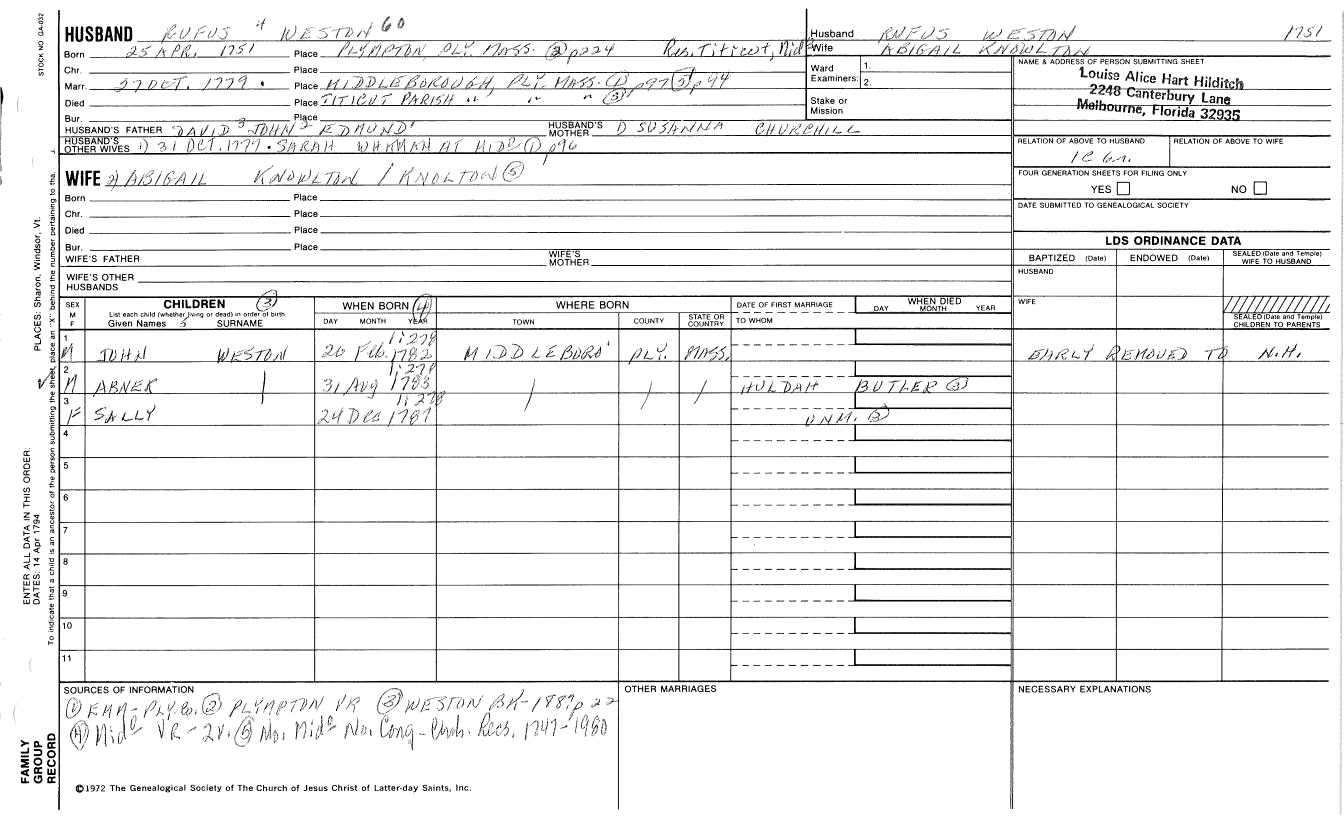 STOCK NO GA-032
HUSBAND RUFUS 4 WESTON 60
Born 25 APR. 1751 Place PLYMPTON, PLY. MASS. (2) p224 Res. Titicut, Mid
Chr. Place
Marr. 27 OCT. 1779. Place MIDDLEBOROUGH, PLY. MASS. (1) p97 (5) p 94
Died Place TITICUT PARISH " " " (3)
Bur. Place
HUSBAND'S FATHER DAVID 3 JOHN 2 EDMUND 1 HUSBAND'S MOTHER D SUSANNA CHURCHILL
HUSBAND'S OTHER WIVES 1) 31 OCT. 1777. SARAH AT MIDO (1) p96
WIFE 2) ABIGAIL KNOWLTON / KNOLTON (5)
Born Place
Chr. Place
Died Place
Bur. Place
WIFE'S FATHER WIFE'S MOTHER
WIFE'S OTHER HUSBANDS
Husband RUFUS WESTON 1751
Wife ABIGAIL KNOWLTON
Ward Examiners: 1.
2.
Stake or Mission
NAME & ADDRESS OF PERSON SUBMITTING SHEET
Louise Alice Hart Hilditch
2248 Canterbury Lane
Melbourne, Florida 32935
RELATION OF ABOVE TO HUSBAND RELATION OF ABOVE TO WIFE
FOUR GENERATION SHEETS FOR FILING ONLY
YES NO
DATE SUBMITTED TO GENEALOGICAL SOCIETY
LDS ORDINANCE DATA
BAPTIZED (Date) ENDOWED (Date) SEALED (Date and Temple) WIFE TO HUSBAND
HUSBAND
WIFE
SEALED (Date and Temple) CHILDREN TO PARENTS
SEX M F CHILDREN (3) List each child (whether living or dead) in order of birth Given Names 5 SURNAME
WHEN BORN (4) DAY MONTH YEAR
WHERE BORN TOWN COUNTY STATE OR COUNTRY
DATE OF FIRST MARRIAGE TO WHOM
WHEN DIED DAY MONTH YEAR
1:278
1 M JOHN WESTON 20 Feb. 1782 MIDDLEBORO' PLY. MASS. EARLY REMOVED TO N.H.
1:278
2 M ABNER 31 Aug 1783 HULDAH BUTLER (3)
1:278
3 F SALLY 24 Dec 1787 UNM. (3)
4
5
6
7
8
9
10
11
PLACES: Sharon, Windsor, Vt.
ENTER ALL DATA IN THIS ORDER:
DATES: 14 Apr 1794
To indicate that a child is an ancestor of the person submitting the sheet, place an "X" behind the number pertaining to tha.
FAMILY GROUP RECORD
SOURCES OF INFORMATION
(1) EMM-PLY.Co. (2) PLYMPTON VR (3) WESTON BK-1887 p 22
(4) Mido VR-2V. (5) No. Mido No. Cong. Recs. 1747-1980
OTHER MARRIAGES
NECESSARY EXPLANATIONS
©1972 The Genealogical Society of The Church of Jesus Christ of Latter-day Saints, Inc.